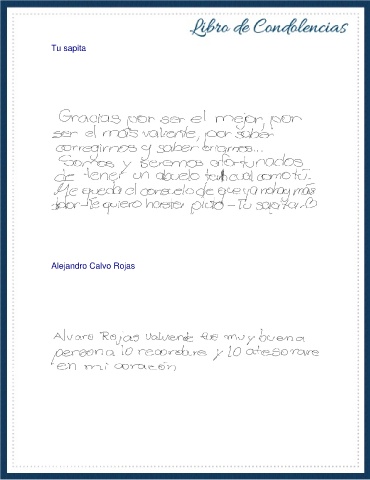 Libro de Condolencias
Tu sapita
Gracias por ser el mejor, por
ser el más valiente, por saber
corregirnos y saber criarnos...
Somos y seremos afortunados
de tener un abuelo tal cual como tú.
Me queda el consuelo de que ya no hay más
dolor. Te quiero hasta pluto - Tu sapita
Alejandro Calvo Rojas
Alvaro Rojas Valverde fue muy buena
persona lo recordare y lo atesorare
en mi corazón